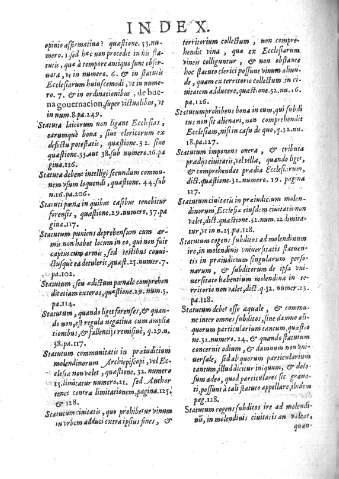 INDEX.
opinio affirmatiua? quæstione. 33. nu-
mero. 1. sed hæc non procedit in his sta-
tutis, quæ à tempore antiquo sunt obser-
uata, vt in numero. 6. & in statutis
Ecclesiarum huiuscemodi, vt in nume-
ro. 7. & in ordinationibus, de bue-
na gouernacion, super victualibus, vt
in num. 8. pa. 249.
Statuta laicorum non ligant Ecclesias,
earumque bona, siue clericorum ex
defectu potestatis, quæstione. 32. siue
quæstione. 33. aut 38. sub numero. 16. pa
gina. 126.
Statuta debent intelligi secundum commu-
nem vsum loquendi, quæstione. 44. sub
n. 16. pa. 206.
Statuti pœna in quibus casibus tenebitur
forensis, quæstione. 29. numero. 37. pa
gina. 117.
Statutum puniens deprehensum cum ar-
mis non habet locum in eo, qui non fuit
captus cum armis, sed testibus conui-
ctusque ea detulerit, quæst. 25. numer. 7.
pa. 102.
Statutum, seu edictum pœnale comprehen-
dit etiam exteros, quæstione. 29. num. 5.
pa. 114.
Statutum, quando liget forenses, & quan-
do non, est regula negatiua cum amplia
tionibus, & fallentijs remissiuè, q. 29. n.
38. pa. 117.
Statutum communitatis in præiudicium
molendinorum Archiepiscopi, vel Ec-
clesiæ non valet, quæstione. 32. numero
23. limitatur numero. 22. sed Author
tenet contra limitationem, pagina. 125.
& 128.
Statutum ciuitatis, quo prohibetur vinum
in vrbem adduci extra ipsius fines, &
territorium collectum, non compre-
hendit vina, quæ ex Ecclesiarum
vineis colliguntur, & non obstante
hoc statuto clerici possunt vinum aliun-
de, quàm ex territorio collectum in ci-
uitatem adducere, quæstione. 32. nu. 16.
pa. 126.
Statutum prohibens bona in eum, qui subdi
tus non sit alienari, non comprehendit
Ecclesiam, nisi in casu de quo, q. 32. nu.
18. pa. 127.
Statutum imponens onera, & tributa
prædijs ciuitatis, vel villæ, quando liget,
& comprehendat prædia Ecclesiarum,
dict. quæstione. 32. numero. 19. pagina
127.
Statutum ciuitatis in præiudicium molen-
dinorum Ecclesiæ eiusdem ciuitatis non
valet, dict. quæstione. 32. num. 22. limita-
tur, vt in n. 23. pa. 128.
Statutum cogens subditos ad molendinum
ire, in molendinis vniuersitatis statuen-
tis in præiudicium singularum perso-
narum, & subditorum de ipsa vni-
uersitate habentium molendina in ter-
ritorio non valet, dict. q. 32. numer. 23.
pa. 128.
Statutum debet esse æquale, & commu-
niter omnes subditos, sine damno ali-
quorum particularium tantùm, quæstio
ne. 32. numero. 24. & quando statutum
concernit odium, & damnum non vni-
uersale, sed aliquorum particularium
tantùm, illud dicitur iniquum, & dam-
nosum adeo, quod particulares sic graua-
ti, possunt à tali statuto appellare, ibidem
pag. 128.
Statutum cogens subditos ire ad molendi-
nũ, in molendinis ciuitatis an valeat,
quan-